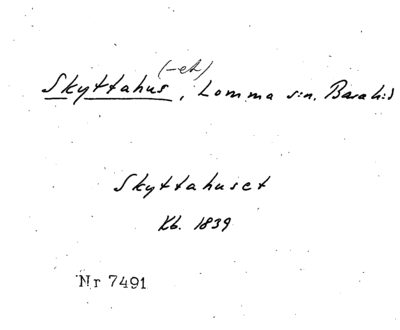 (-et)
Skyttahus, Lomma sn, Bara hd
Skyttahuset
Kb. 1839
Nr 7491